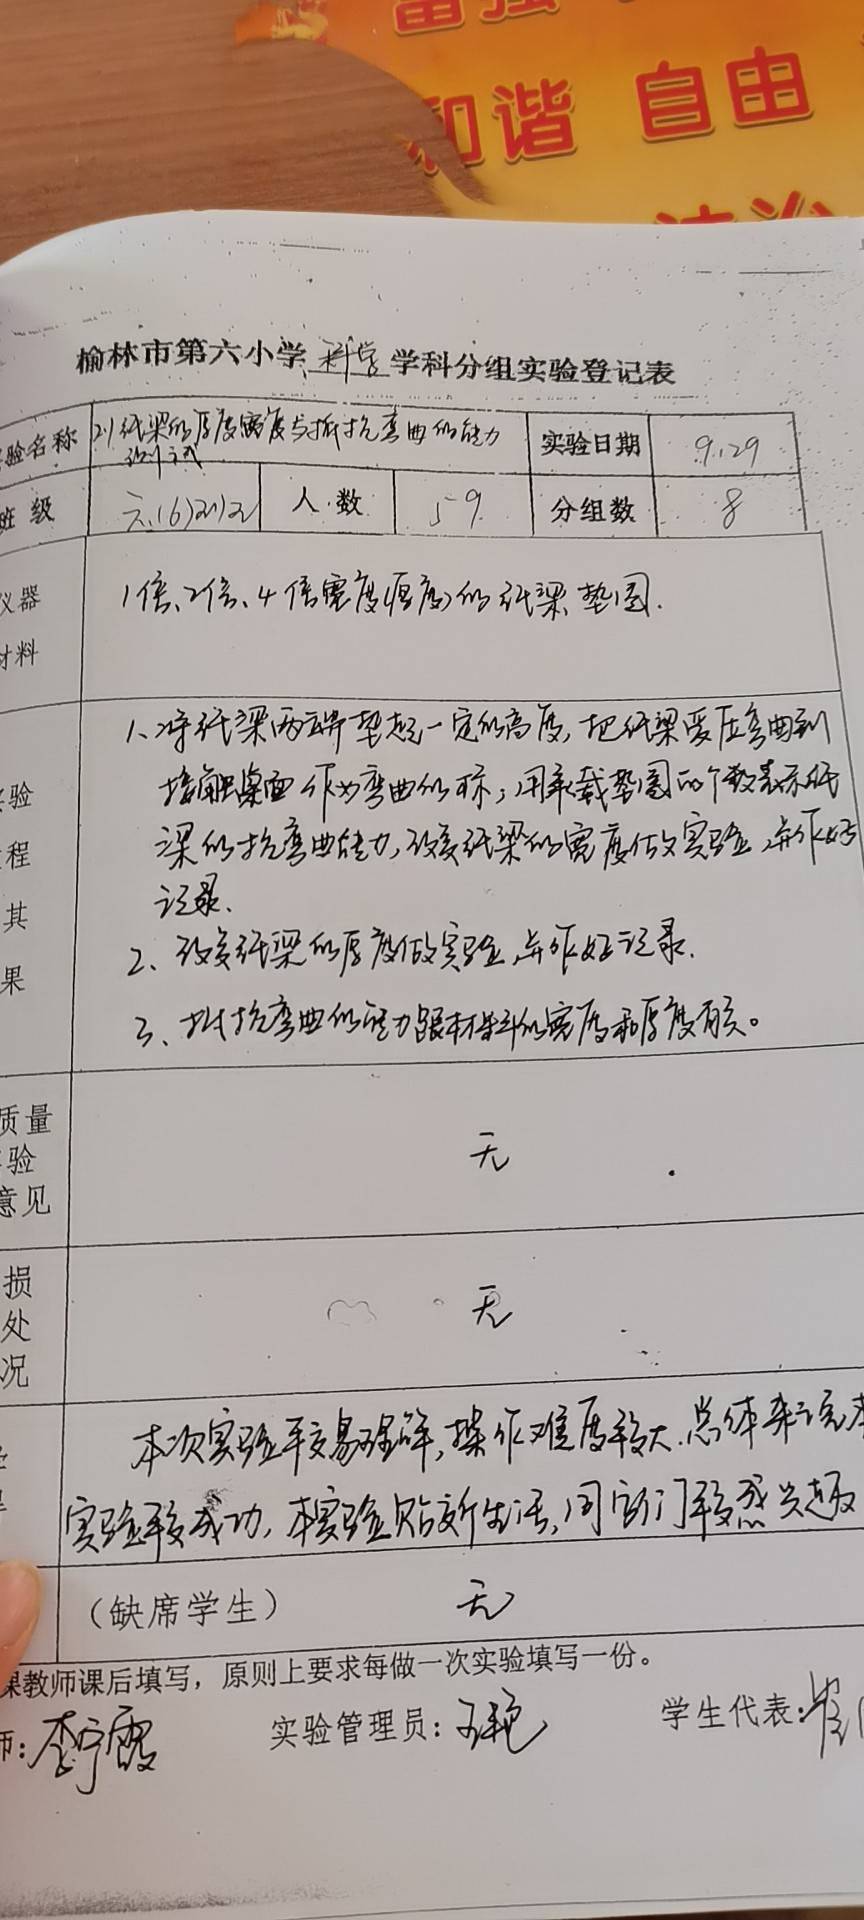 富强
和谐 自由
法治
榆林市第六小学 科学 学科分组实验登记表
验名称 对纸梁的厚度宽度与抵抗弯曲的能力 实验日期 9.29
测试
班级 六.(6) 人数 59 分组数 8
仪器 1倍、2倍、4倍宽度(厚度)的纸梁 垫圈.
材料
1、将纸梁两端垫起一定的高度,把纸梁受压弯曲到
验 接触桌面作为弯曲的标,用承载垫圈的个数表示纸
程 梁的抗弯曲能力,改变纸梁的宽度做实验,并作好
其 记录.
果 2、改变纸梁的厚度做实验,并作好记录.
3、抵抗弯曲的能力跟材料的宽度和厚度有关。
质量
验 无
意见
损
处 无
况
本次实验较易理解,操作难度较大.总体来说本
实验较成功,本实验贴近生活,同学们较感兴趣
(缺席学生) 无
课教师课后填写,原则上要求每做一次实验填写一份。
师:李宁霞 实验管理员:王艳 学生代表: